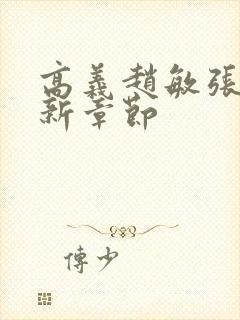 高義趙敏張
新章節
傅少